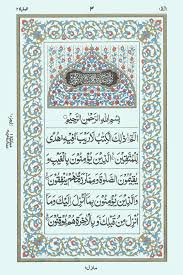 ۳
بِسْمِ اللهِ الرَّحْمٰنِ الرَّحِيْمِ
الٓمّٓ ذٰلِكَ الْكِتٰبُ لَا رَيْبَ فِيْهِ هُدًى
لِّلْمُتَّقِيْنَ الَّذِيْنَ يُؤْمِنُوْنَ بِالْغَيْبِ وَ
يُقِيْمُوْنَ الصَّلٰوةَ وَمِمَّا رَزَقْنٰهُمْ يُنْفِقُوْنَ
وَالَّذِيْنَ يُؤْمِنُوْنَ بِمَا اُنْزِلَ اِلَيْكَ وَمَا
اُنْزِلَ مِنْ قَبْلِكَ وَبِالْاٰخِرَةِ هُمْ يُوْقِنُوْنَ
منزل۱